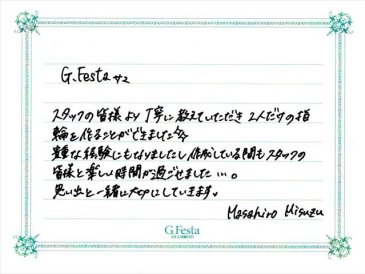 G.Festa さま
スタッフの皆様より丁寧に教えていただき 2人だけの指
輪を作ることができました
貴重な経験にもなりましたし 作成している間もスタッフの
皆様と楽しい時間が過ごせました…。
思い出と一緒に大切にしていきます。
Masahiro Misuzu
G.Festa
DIAMOND